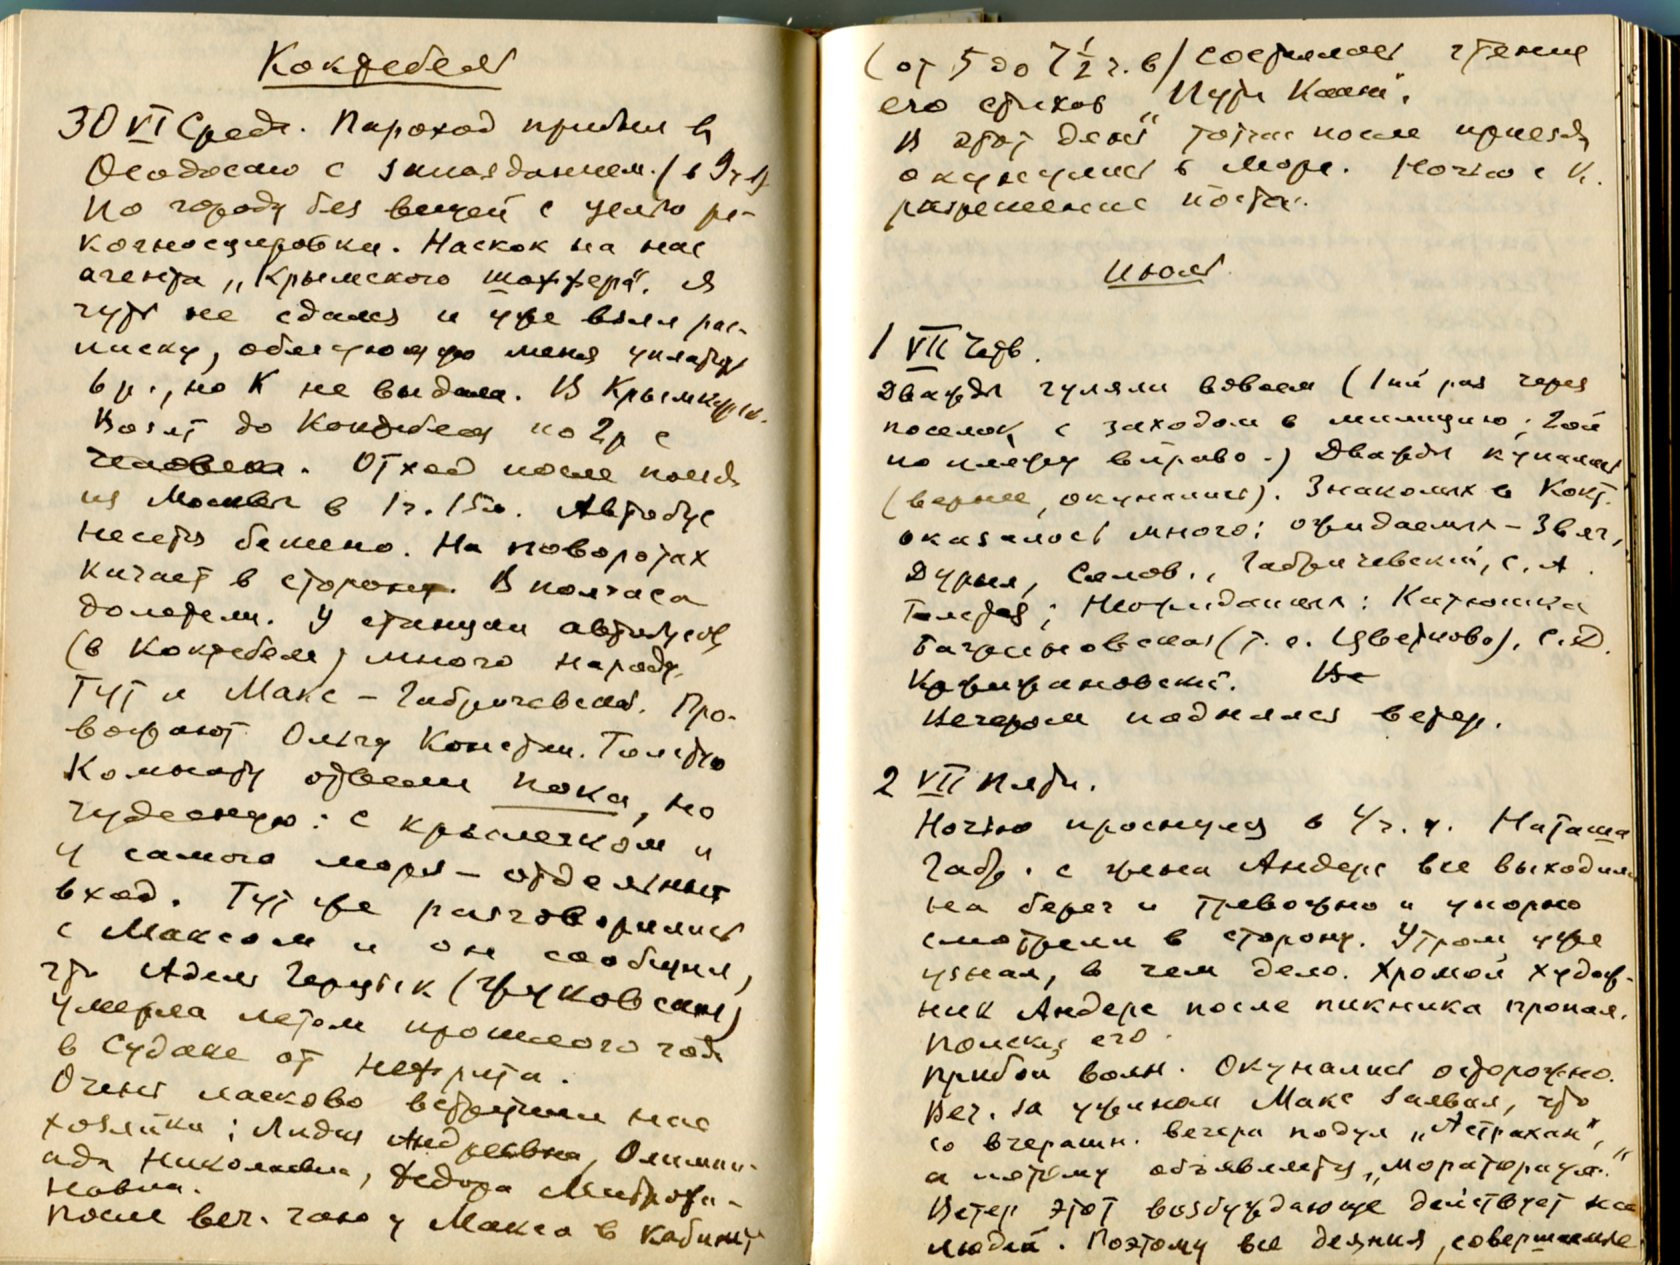 Коктебель
30 VI Среда. Пароход прибыл в
Феодосию с запозданием. (в 9 ч.
По городу без вещей с целью ре-
когносцировки. Наскок на нас
агента „Крымского шоффера“. Я
чуть не сдался и уже взял рас-
писку, обязующую меня уплатить
6 р., но К не выдала. В Крымкурсо.
Возят до Коктебеля по 2 р с
человека. Отход после поезда
из Москвы в 1 ч. 15 м. Автобус
несется бешено. На поворотах
кичает в сторону. В полчаса
долетели. У станции автобусов
(в Коктебеле) много народу.
Тут и Макс – Габричевский. Про-
вожают Ольгу Констан. Толстую
Комнату отвели пока, но
чудесную: с крылечком и
у самого моря – отдельный
вход. Тут же разговорились
с Максом и он сообщил,
что Адель Герцык (Жуковская)
умерла летом прошлого года
в Судаке от нефрита.
Очень ласково встретили нас
хозяйки; Лидия Андреевна, Олимпи-
ада Николаевна, Федора Митрофа-
новна.
После веч. чаю у Макса в кабинете
(от 5 до 7 1/2 ч. в) состоялось чтение
его стихов „Пути Каина“.
В этот день тотчас после приезда
окунулись в море. Ночью с К.
разрешение поста.
Июль
1 VII Четв.
Дважды гуляли вдвоем (1ый раз через
поселок с заходом в милицию; 2ой
по пляжу вправо.) Дважды купались
(вернее, окунались). Знакомых в Кокт.
оказалось много: ожидаемых – Звяг,
Дурыл, Солов., Габричевский, С. А.
Толстая; Неожиданных: Катюшка
Багриновская (т. е. Цветково), С. Д.
Кржижановский. Ве
Вечером поднялся ветер.
2 VII Пятн.
Ночью проснулся в 4 ч. у. Наташа
Габр. с жена Андерс все выходили
на берег и тревожно и упорно
смотрели в сторону. Утром уже
узнал, в чем дело. Хромой худож-
ник Андерс после пикника пропал.
Поиски его.
Прибой волн. Окунались осторожно.
Веч. за ужином Макс заявил, что
со вчерашн. вечера подул „Астрахан“,
а потому объявляется „мораториум“.
Ветер этот возбуждающе действует на
людей. Поэтому все деяния, совершаемые